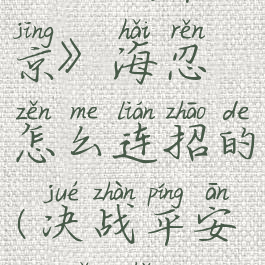 jīng hǎi rěn
京》海忍
zěn me lián zhāo de
怎么连招的
jué zhàn píng ān
(决战平安